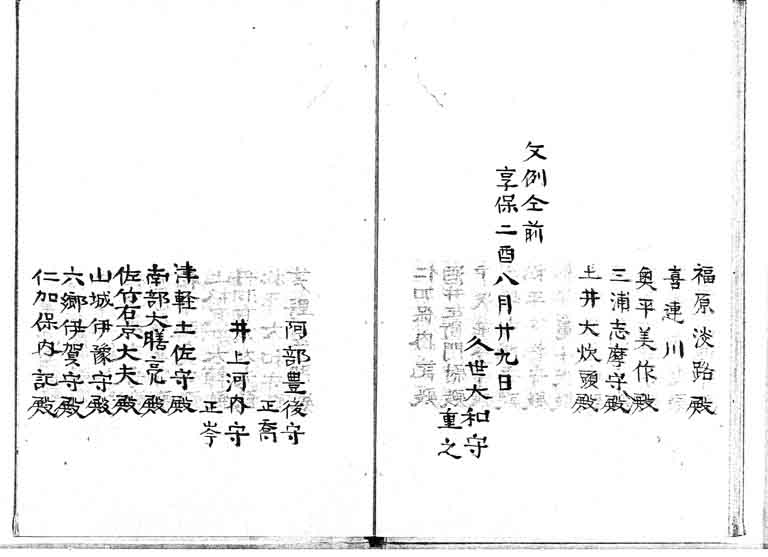 福原淡路殿
喜連川
奥平美作殿
三浦志摩守殿
土井大炊頭殿
文例仝前
享保二酉八月廿九日
久世大和守
重之
阿部豊後守
正喬
井上河内守
正岑
津軽土佐守殿
南部大膳亮殿
佐竹右京大夫殿
山城伊豫守殿
六郷伊賀守殿
仁加保内記殿